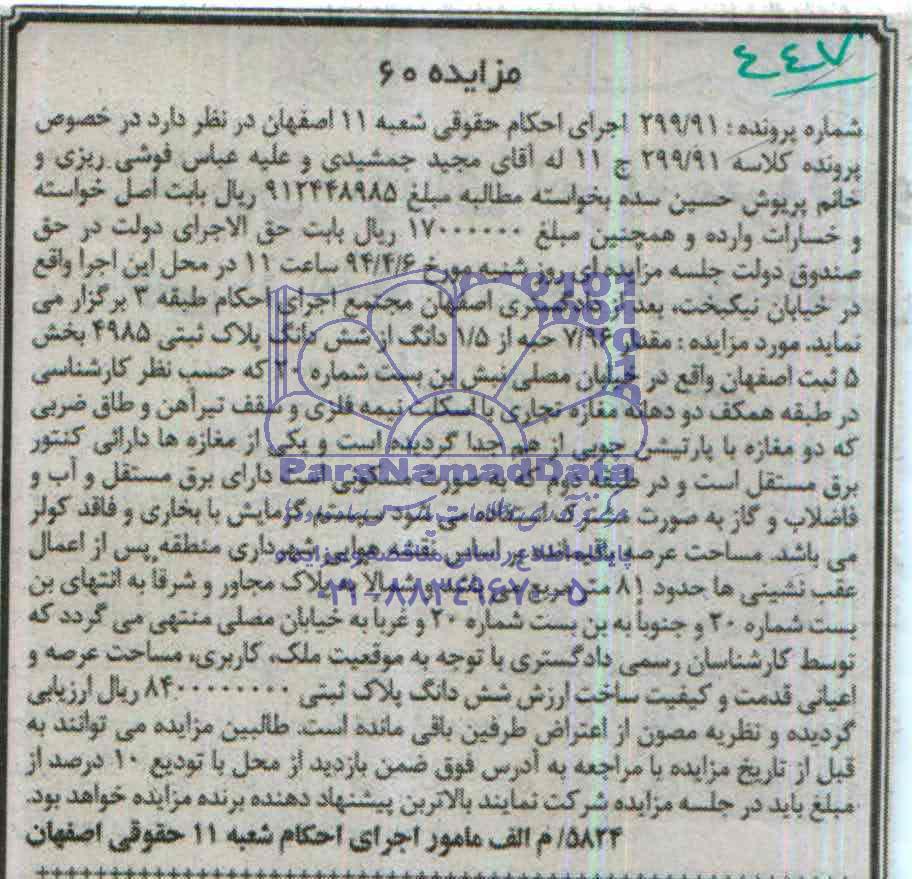 ۴۴۷
مزایده ۶۰
شماره پرونده : ۲۹۹/۹۱ اجرای احکام حقوقی شعبه ۱۱ اصفهان در نظر دارد در خصوص
پرونده کلاسه ۲۹۹/۹۱ ج ۱۱ له آقای مجید جمشیدی و علیه عباس فوشی ریزی و
خانم پریوش حسین سده بخواسته مطالبه مبلغ ۹۱۲۴۴۸۹۸۵ ریال بابت اصل خواسته
و خسارات وارده و همچنین مبلغ ۱۷۰۰۰۰۰۰ ریال بابت حق الاجرای دولت در حق
صندوق دولت جلسه مزایده ای روز شنبه مورخ ۹۴/۴/۶ ساعت ۱۱ در محل این اجرا واقع
در خیابان نیکبخت، بعد از دادگستری اصفهان مجتمع اجرای احکام طبقه ۳ برگزار می
نماید. مورد مزایده : مقدار ۷/۹۴ حبه از ۱/۵ دانگ از شش دانگ پلاک ثبتی ۴۹۸۵ بخش
۵ ثبت اصفهان واقع در خیابان مصلی نبش بن بست شماره ۲۰ که حسب نظر کارشناسی
در طبقه همکف دو دهانه مغازه تجاری با اسکلت نیمه فلزی و سقف تیرآهن و طاق ضربی
که دو مغازه با پارتیشن چوبی از هم جدا گردیده است و یکی از مغازه ها دارائی کنتور
برق مستقل است و در طبقه دوم که به صورت مسکونی است دارای برق مستقل و آب و
فاضلاب و گاز به صورت مشترک استفاده می شود سیستم گرمایش با بخاری و فاقد کولر
می باشد. مساحت عرصه باقیمانده بر اساس نقشه هوایی شهرداری منطقه پس از اعمال
عقب نشینی ها حدود ۸۱ متر مربع می باشد و شمالا به پلاک مجاور و شرقا به انتهای بن
بست شماره ۲۰ و جنوبا به بن بست شماره ۲۰ و غربا به خیابان مصلی منتهی می گردد که
توسط کارشناسان رسمی دادگستری با توجه به موقعیت ملک، کاربری، مساحت عرصه و
اعیانی قدمت و کیفیت ساخت ارزش شش دانگ پلاک ثبتی ۸۴۰۰۰۰۰۰۰۰ ریال ارزیابی
گردیده و نظریه مصون از اعتراض طرفین باقی مانده است. طالبین مزایده می توانند به
قبل از تاریخ مزایده با مراجعه به آدرس فوق ضمن بازدید از محل با تودیع ۱۰ درصد از
مبلغ باید در جلسه مزایده شرکت نمایند بالاترین پیشنهاد دهنده برنده مزایده خواهد بود.
۵۸۲۴/ م الف مامور اجرای احکام شعبه ۱۱ حقوقی اصفهان
ParsNamadData
۰۲۱-۸۸۳۴۹۶۷۰-۵